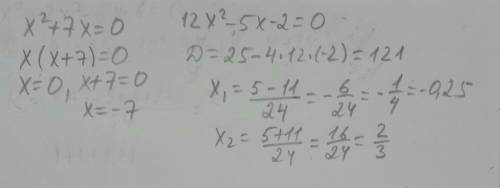 x²+7x=0
x(x+7)=0
x=0, x+7=0
x=-7
12x²-5x-2=0
D=25-4·12·(-2)=121
x₁=\frac{5-11}{24}=-\frac{6}{24}=-\frac{1}{4}=-0,25
x₂=\frac{5+11}{24}=\frac{16}{24}=\frac{2}{3}